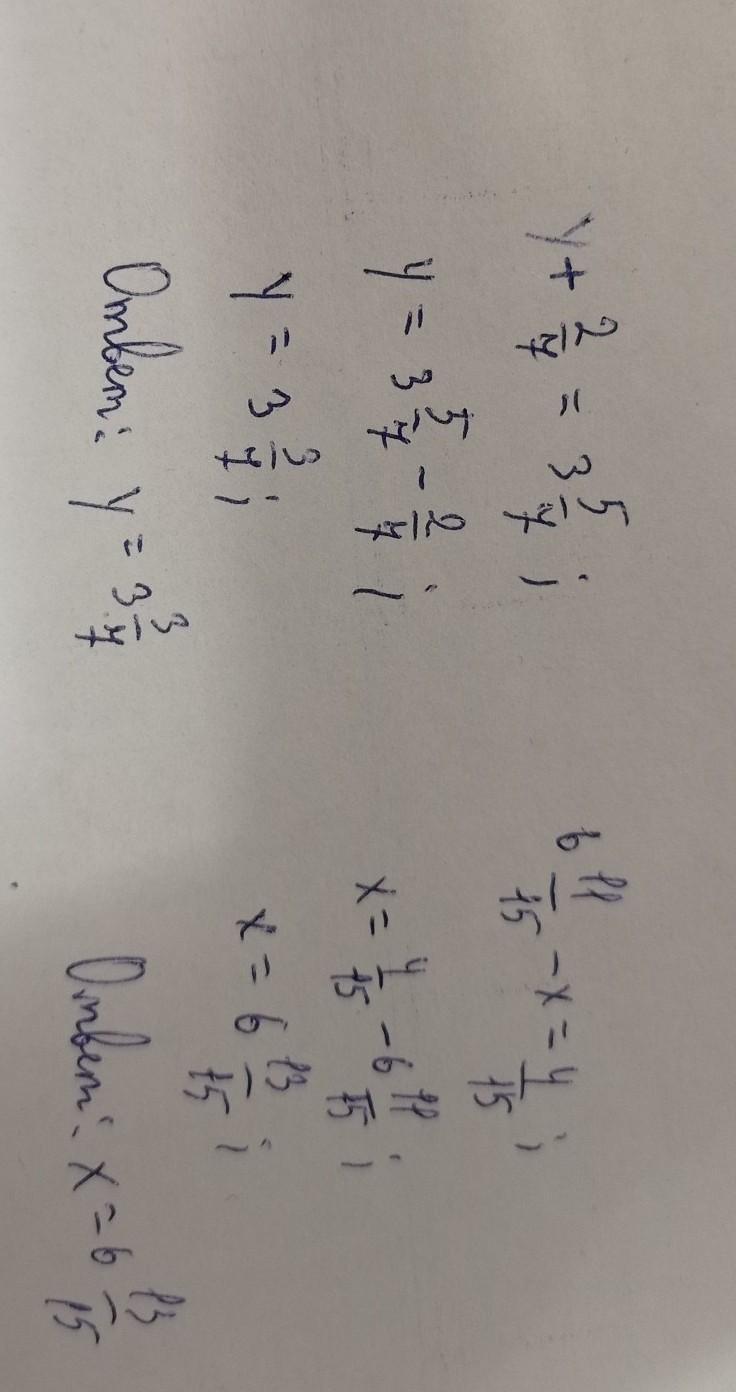 y + 2/7 = 3 5/7 ;
y = 3 5/7 - 2/7 ;
y = 3 3/7 ;
Ответ: y = 3 3/7
6 11/15 - x = 4/15 ;
x = 4/15 - 6 11/15 ;
x = 6 13/15 ;
Ответ: x = 6 13/15